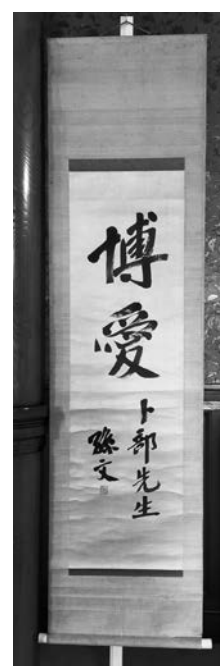 博愛
卜部先生
孫文